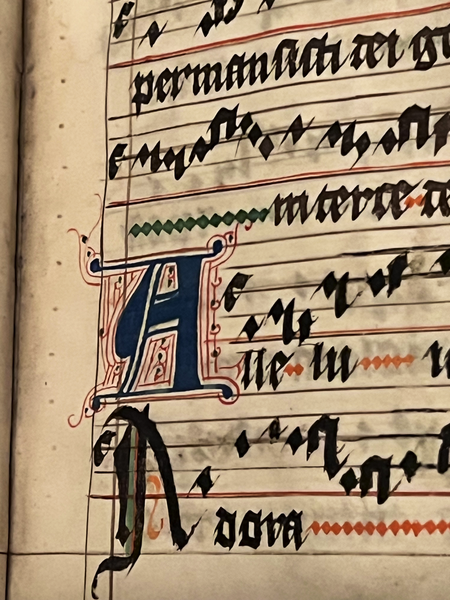 permansisti dei ge
interce-de
Alle-lu-
Adora